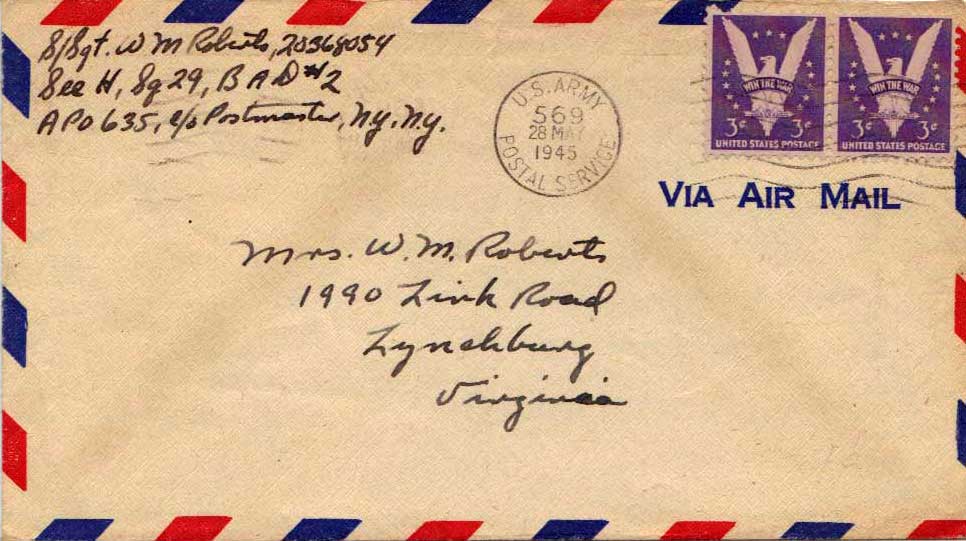 S/Sgt. W M Roberts, 20368054
Sec H, Sq 29, B A D #2
APO 635, c/o Postmaster, N.Y. N.Y.
U.S. ARMY
569
28 MAY
1945
POSTAL SERVICE
WIN THE WAR
3¢ 3¢
UNITED STATES POSTAGE
WIN THE WAR
3¢ 3¢
UNITED STATES POSTAGE
VIA AIR MAIL
Mrs. W. M. Roberts
1990 Link Road
Lynchburg
Virginia